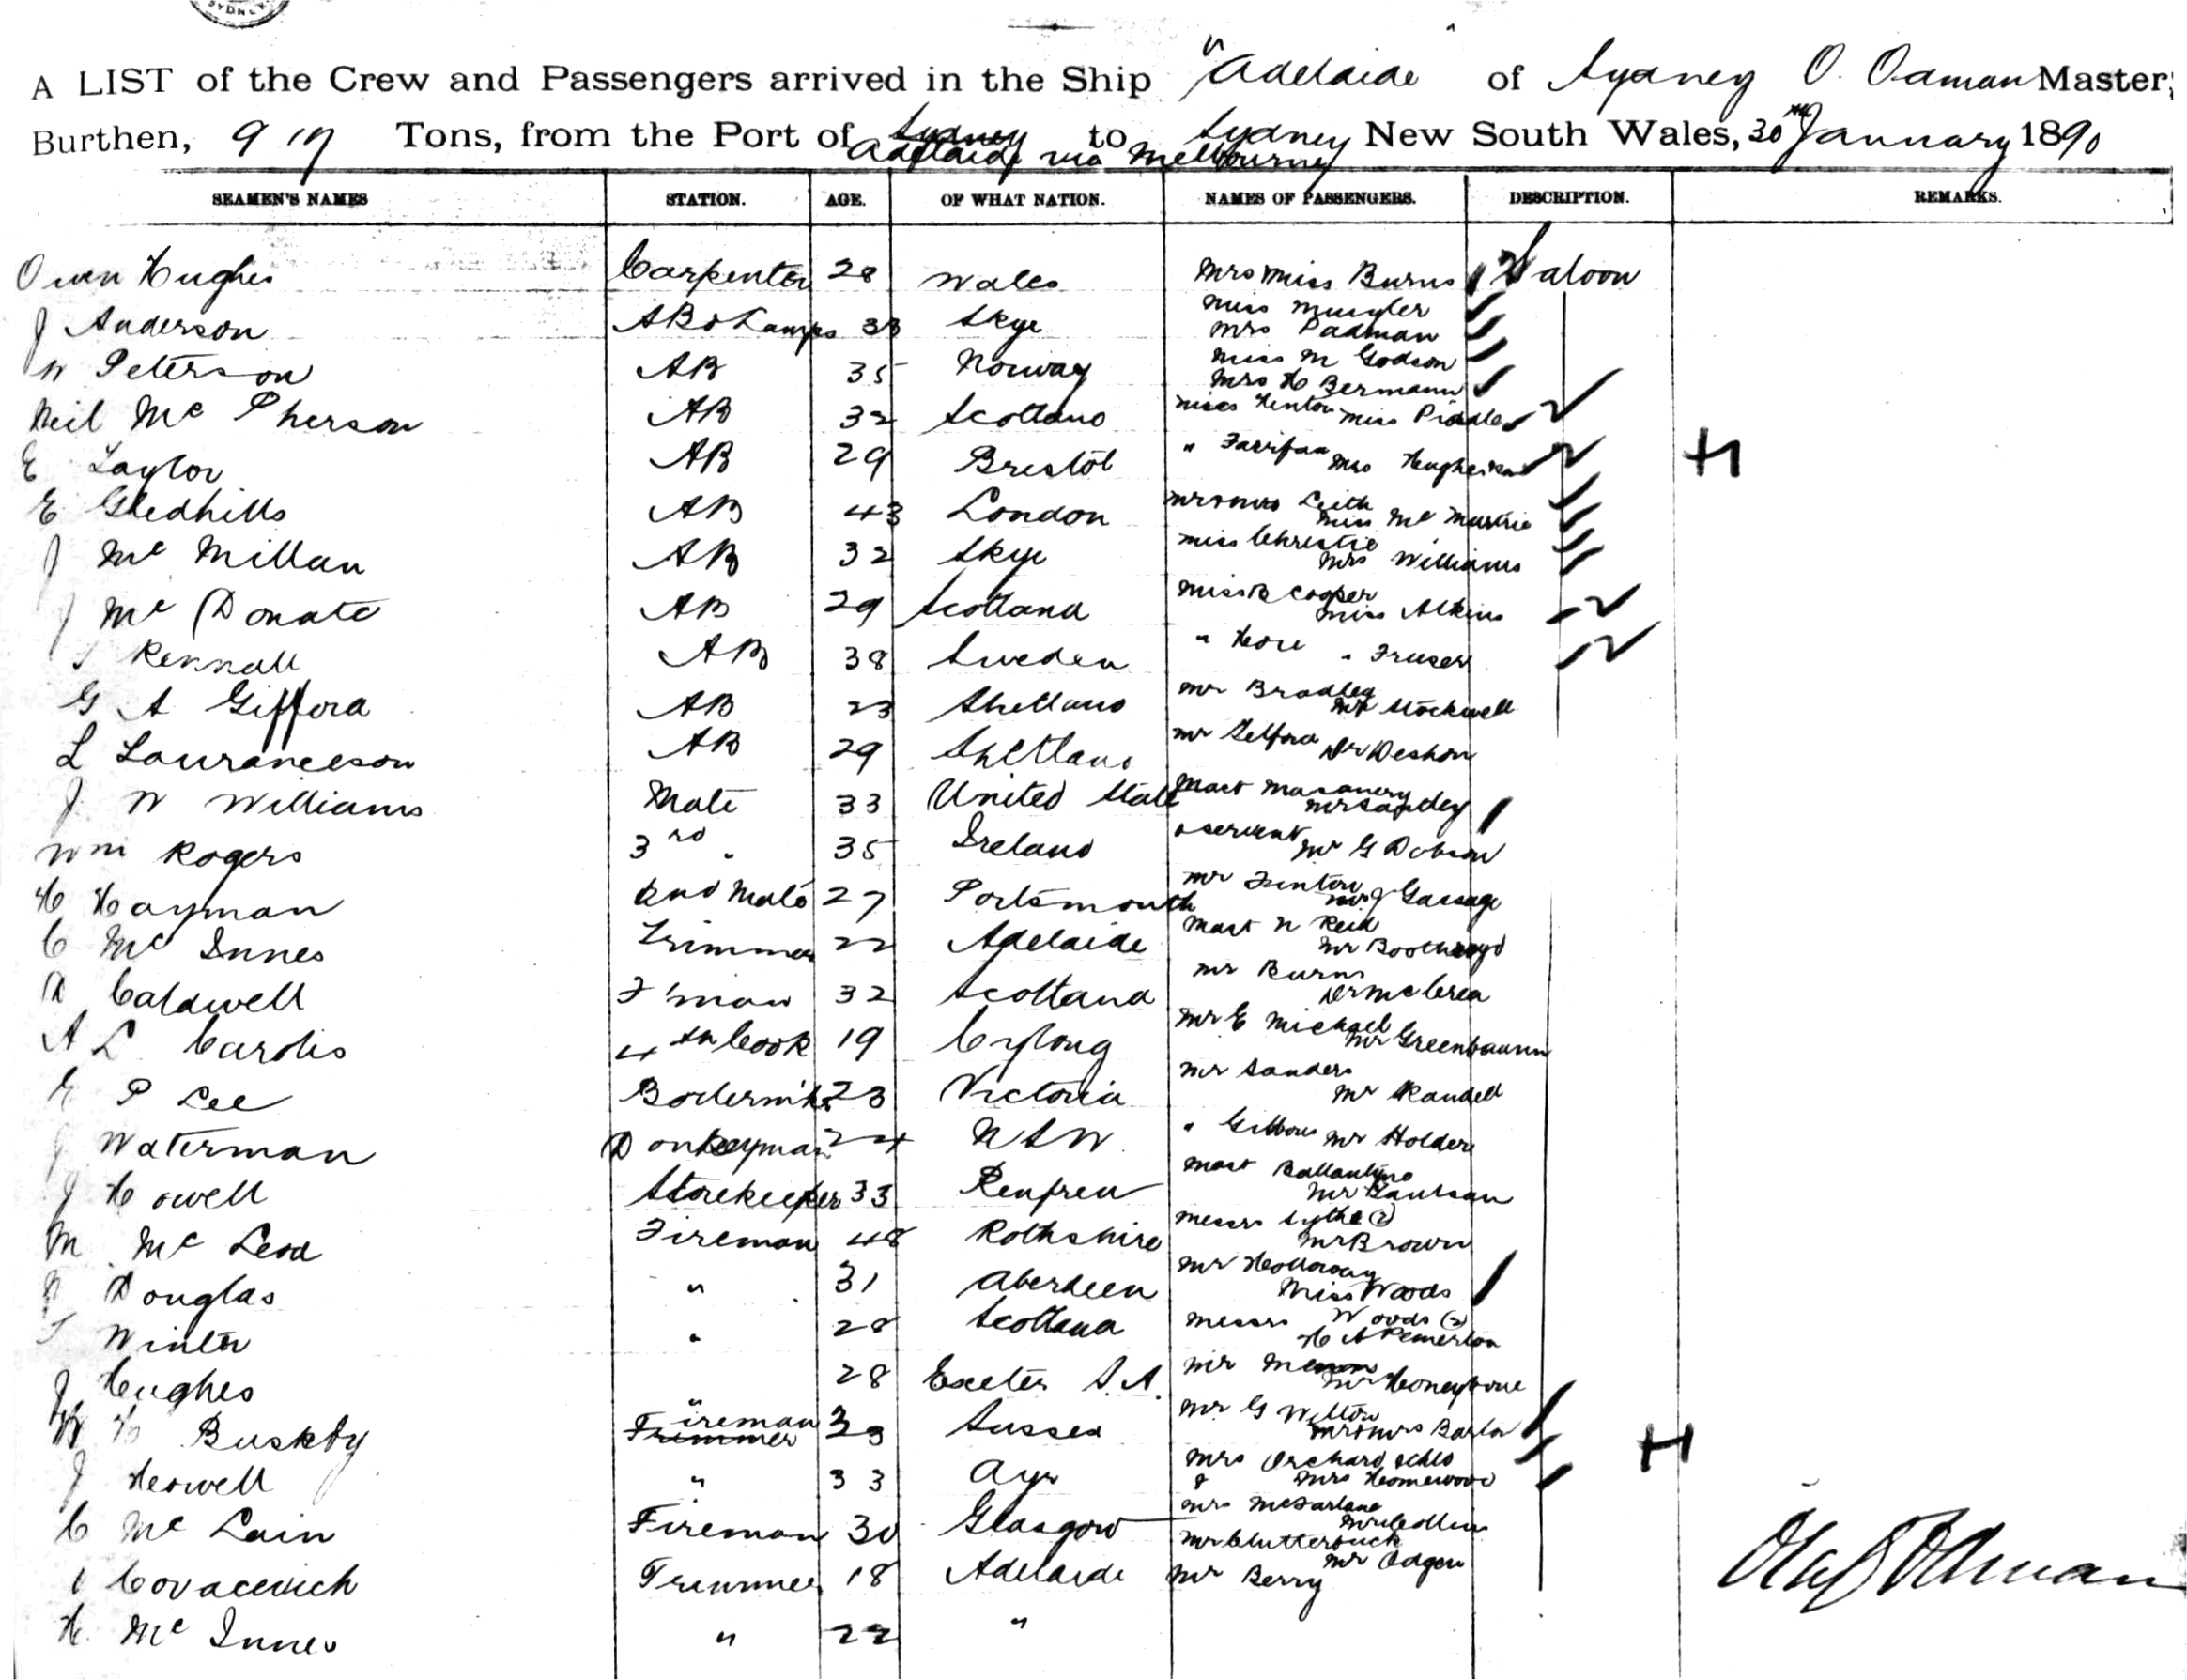 SYDNEY
A LIST of the Crew and Passengers arrived in the Ship "Adelaide" of Sydney O. Odman Master,
Burthen, 917 Tons, from the Port of Sydney to Sydney New South Wales, 30th January 1890
Adelaide via Melbourne
SEAMEN'S NAMES STATION. AGE. OF WHAT NATION. NAMES OF PASSENGERS. DESCRIPTION. REMARKS.
Owen Hughes Carpenter 28 Wales Mrs Miss Burns Saloon
J Anderson AB & Lamps 33 Skye Miss
Mrs Padman
W Peterson AB 35 Norway Miss M Godson
Mrs H Bermann
Neil Mc Pherson AB 32 Scotland Misses Henton Miss Piddle
E Taylor AB 29 Bristol " Fairfax Mrs H
E Gledhills AB 43 London Mr & Mrs Leith
Miss Mc
J Mc Millan AB 32 Skye Miss Christie
Mrs Williams
J Mc Donald AB 29 Scotland Miss B Cooper
Miss Atkins
Rennall AB 38 Sweden " Hore " Fraser
G A Gifford AB 23 Shetland Mr Bradley
Mr Stockwell
L Lourancesson AB 29 Shetland Mr Telford Dr Deshon
J W Williams Mate 33 United State Mast
Mr
Wm Rogers 3rd " 35 Ireland & servant Mr G Dobson
H Hayman 2nd Mate 27 Portsmouth Mr Fenton
Mr J Gassage
C Mc Innes Trimmer 22 Adelaide Mast N Reid
Mr Boothroyd
D Caldwell F'man 32 Scotland Mr Burns
Dr McCrea
A L Carolis 4th Cook 19 Ceylong Mr E Michael
Mr Greenbaum
E P Lee 23 Victoria Mr Sanders
Mr Randell
J Waterman Donkeyman 24 NSW " Gibbons Mr Holder
J Howell Storekeeper 33 Renfrew Mast Ballantyne
Mr
M Mc Leod Fireman 48 Rothshire Messrs Sythe (2)
Mr Brown
Douglas " 31 Aberdeen Mr Holloway
Miss Woods
Winter " 28 Scotland Messrs Woods (2)
H A Pemerton
J Hughes " 28 Exeter S.A. Mr
Mr Honeybone
Buskby Fireman Trimmer 23 Sussex Mr G Wilton
Mr & Mrs
J Howell " 33 Ayr Mrs Orchard
& Mrs Homewood
C Mc Lain Fireman 30 Glasgow Mrs McFarlane
Mr Collins
Mr Clutterbuck
Covacevich Trimmer 18 Adelaide Mr Odgen
Mr Berry
H. Mc Innes " 22 "
H
H
Olof Odman